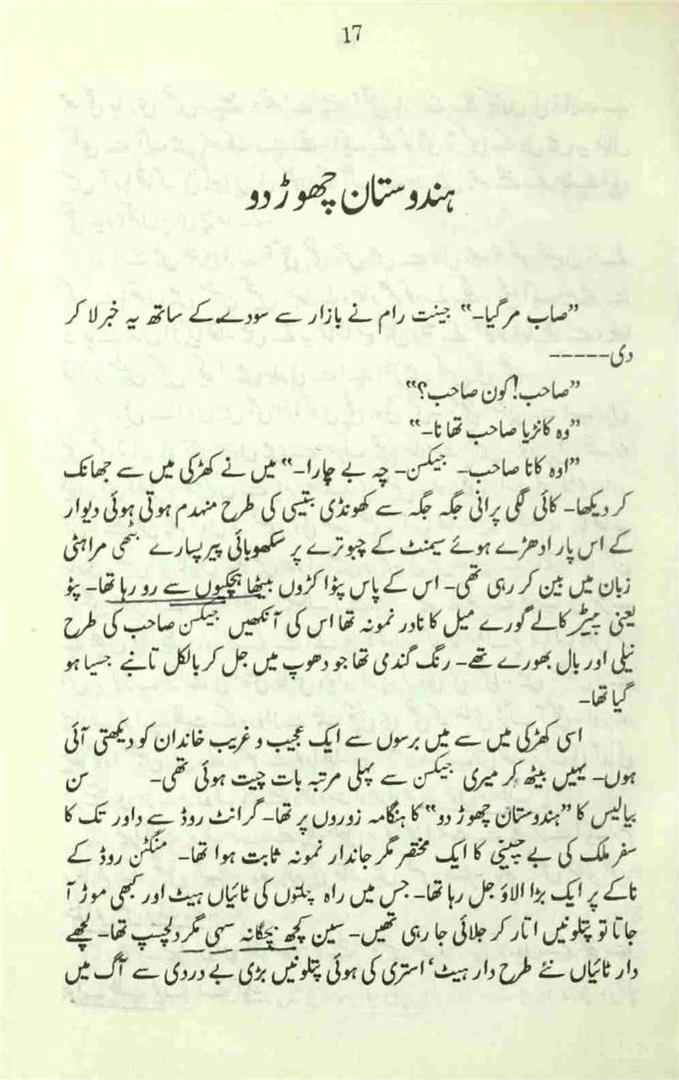 17
ہندوستان چھوڑ دو
”صاب مرگیا۔“ جینت رام نے بازار سے سودے کے ساتھ یہ خبر لا کر
دی-----
”صاحب! کون صاحب؟“
”وہ کانڑیا صاحب تھا نا۔“
”اوہ کانا صاحب۔ جیکسن۔ چہ بے چارا۔“ میں نے کھڑکی میں سے جھانک
کر دیکھا۔ کائی لگی پرانی جگہ جگہ سے کھونڈی بتیسی کی طرح منہدم ہوتی ہوئی دیوار
کے اس پار ادھڑے ہوئے سیمنٹ کے چبوترے پر سکھوبائی پیر پسارے بیٹھی مراہٹی
زبان میں بین کر رہی تھی۔ اس کے پاس پٹوا کڑوں بیٹھا ہچکیوں سے رو رہا تھا۔ پٹو
یعنی پیٹر کالے گورے میل کا نادر نمونہ تھا اس کی آنکھیں جیکسن صاحب کی طرح
نیلی اور بال بھورے تھے۔ رنگ گندمی تھا جو دھوپ میں جل کر بالکل تانبے جسیا ہو
گیا تھا۔
اسی کھڑکی میں سے میں برسوں سے ایک عجیب و غریب خاندان کو دیکھتی آئی
ہوں۔ یہیں بیٹھ کر میری جیکسن سے پہلی مرتبہ بات چیت ہوئی تھی۔ سن
بیالیس کا ”ہندوستان چھوڑ دو“ کا ہنگامہ زوروں پر تھا۔ گرانٹ روڈ سے داور تک کا
سفر ملک کی بے چینی کا ایک مختصر مگر جاندار نمونہ ثابت ہوا تھا۔ منگٹن روڈ کے
ناکے پر ایک بڑا الاؤ جل رہا تھا۔ جس میں راہ چلتوں کی ٹائیاں ہیٹ اور کبھی موڑ آ
جاتا تو پتلونیں اتار کر جلائی جا رہی تھیں۔ سین کچھ بچگانہ سہی مگر دلچسپ تھا۔ لچھے
دار ٹائیاں نئے طرح دار ہیٹ، استری کی ہوئی پتلونیں بڑی بے دردی سے آگ میں